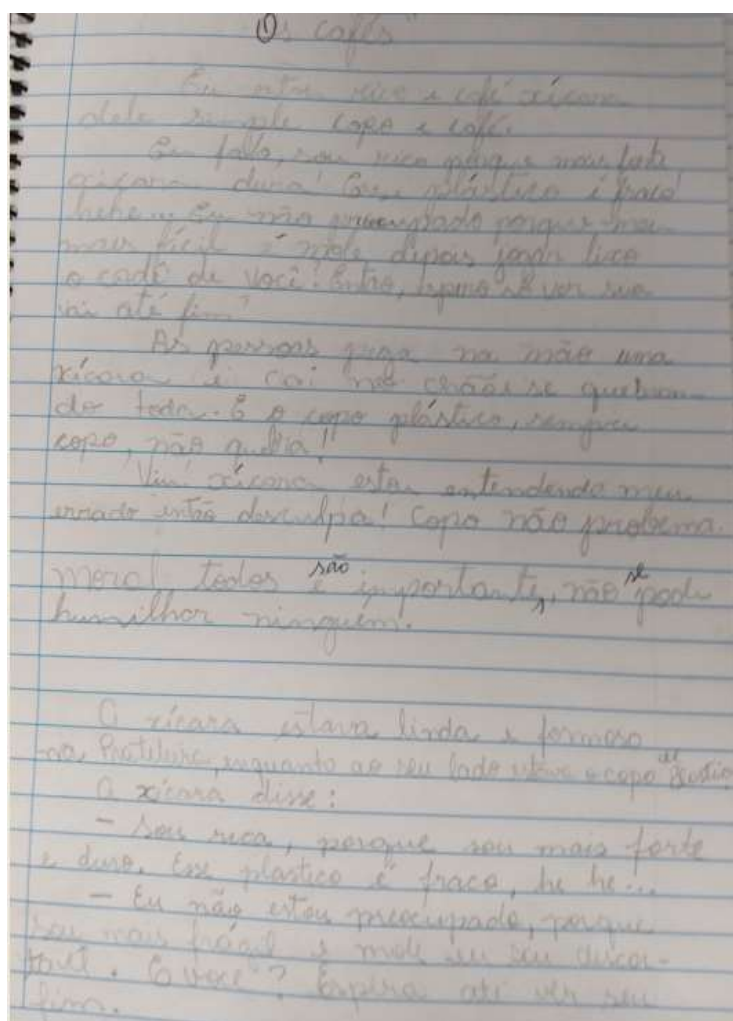 Os cafés
Eu estou rico e café xícara
dele simple copo e café.
Eu falo, sou rico porque mais forte
xícara dura! Esse plástico é fraco
hehe... Eu não preocupado porque meu
mais fácil é mole, depois jogar lixo
e cadê de você? Então, espera só ver sua
vai até fim!
As pessoas pega na mão uma
xícara e cai no chão e se quebran-
do toda. E o copo plástico, sempre
copo, não quebra!
Viu xícara estar entendendo meu
errado então desculpa! Copo não problema.
Moral todos são é importantes, não se pode
humilhar ninguém.
A xícara estava linda e formosa
na Prateleira, enquanto ao seu lado estava o copo de
A xícara disse:
– Sou rica, porque sou mais forte
e dura. Esse plastico é fraco, he he...
– Eu não estou preocupado, porque
sou mais frágil e mole eu sou descar-
tável. E você? Espera até ver seu
fim.